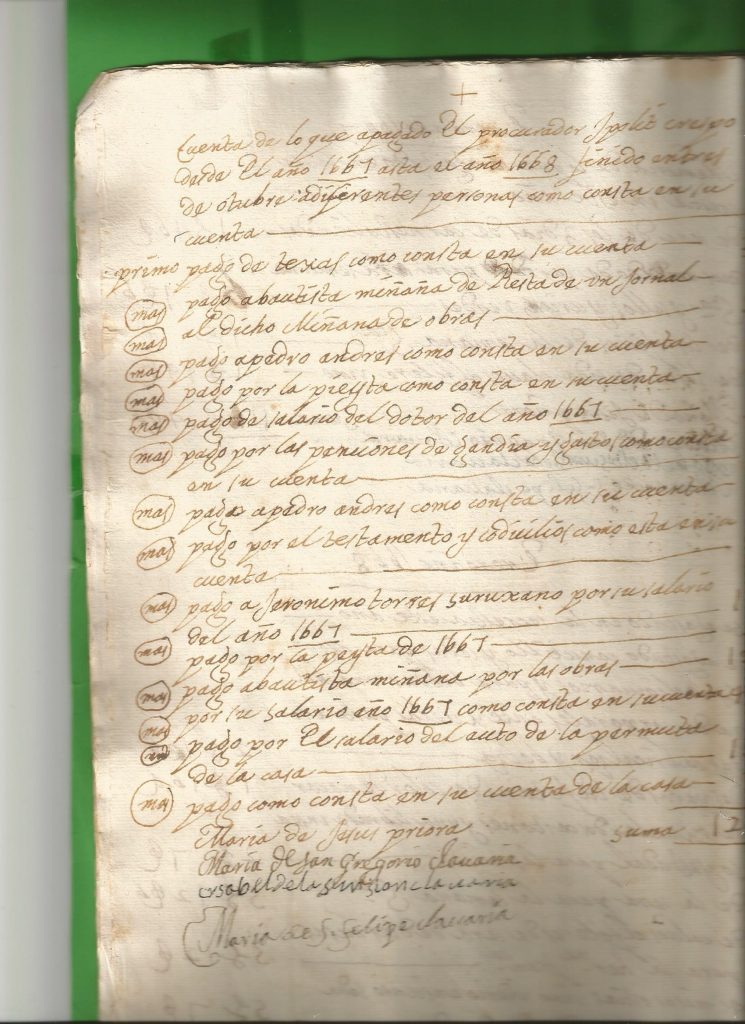 +
Cuenta de lo que apagado El procurador Ipolit crespo
desde El año 1667 asta el año 1668 finido entres
de otubre adiferentes personas como consta en su
cuenta
primo pago de texas como consta en su cuenta
mas pago abautista miñana de Resta de un Jornal
mas al dicho Miñana de obras
mas pago apedro andres como consta en su cuenta
mas pago por la peyta como consta en su cuenta
mas pago de salario del dotor del año 1667
mas pago por las penciones de gandia y gastos como consta
en su cuenta
mas pago apedro andres como consta en su cuenta
mas pago por el testamento y codicilios como esta en su
cuenta
mas pago a Jeronimo torres suruxano por su salario
del año 1667
mas pago por la peyta de 1667
mas pago abautista miñana por las obras
mas por su salario año 1667 como consta en su cuenta
mas pago por El salario del auto de la permuta
de la casa
mas pago como consta en su cuenta de la casa
Maria de Jesus priora suma 12
Maria de san Gregorio Clavaria
ysabel de la clavaria
Maria de S. Felipe clavaria